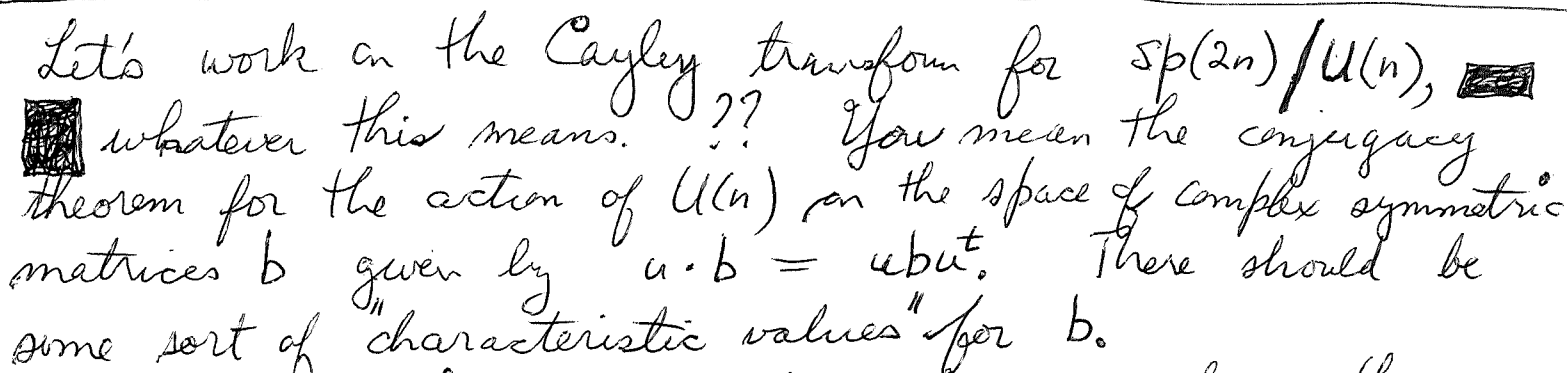 Let's work on the Cayley transform for Sp(2n)/U(n),
whatever this means. ?? You mean the conjugacy
theorem for the action of U(n) on the space of complex symmetric
matrices b given by u·b = ubuᵗ. There should be
some sort of "characteristic values" for b.